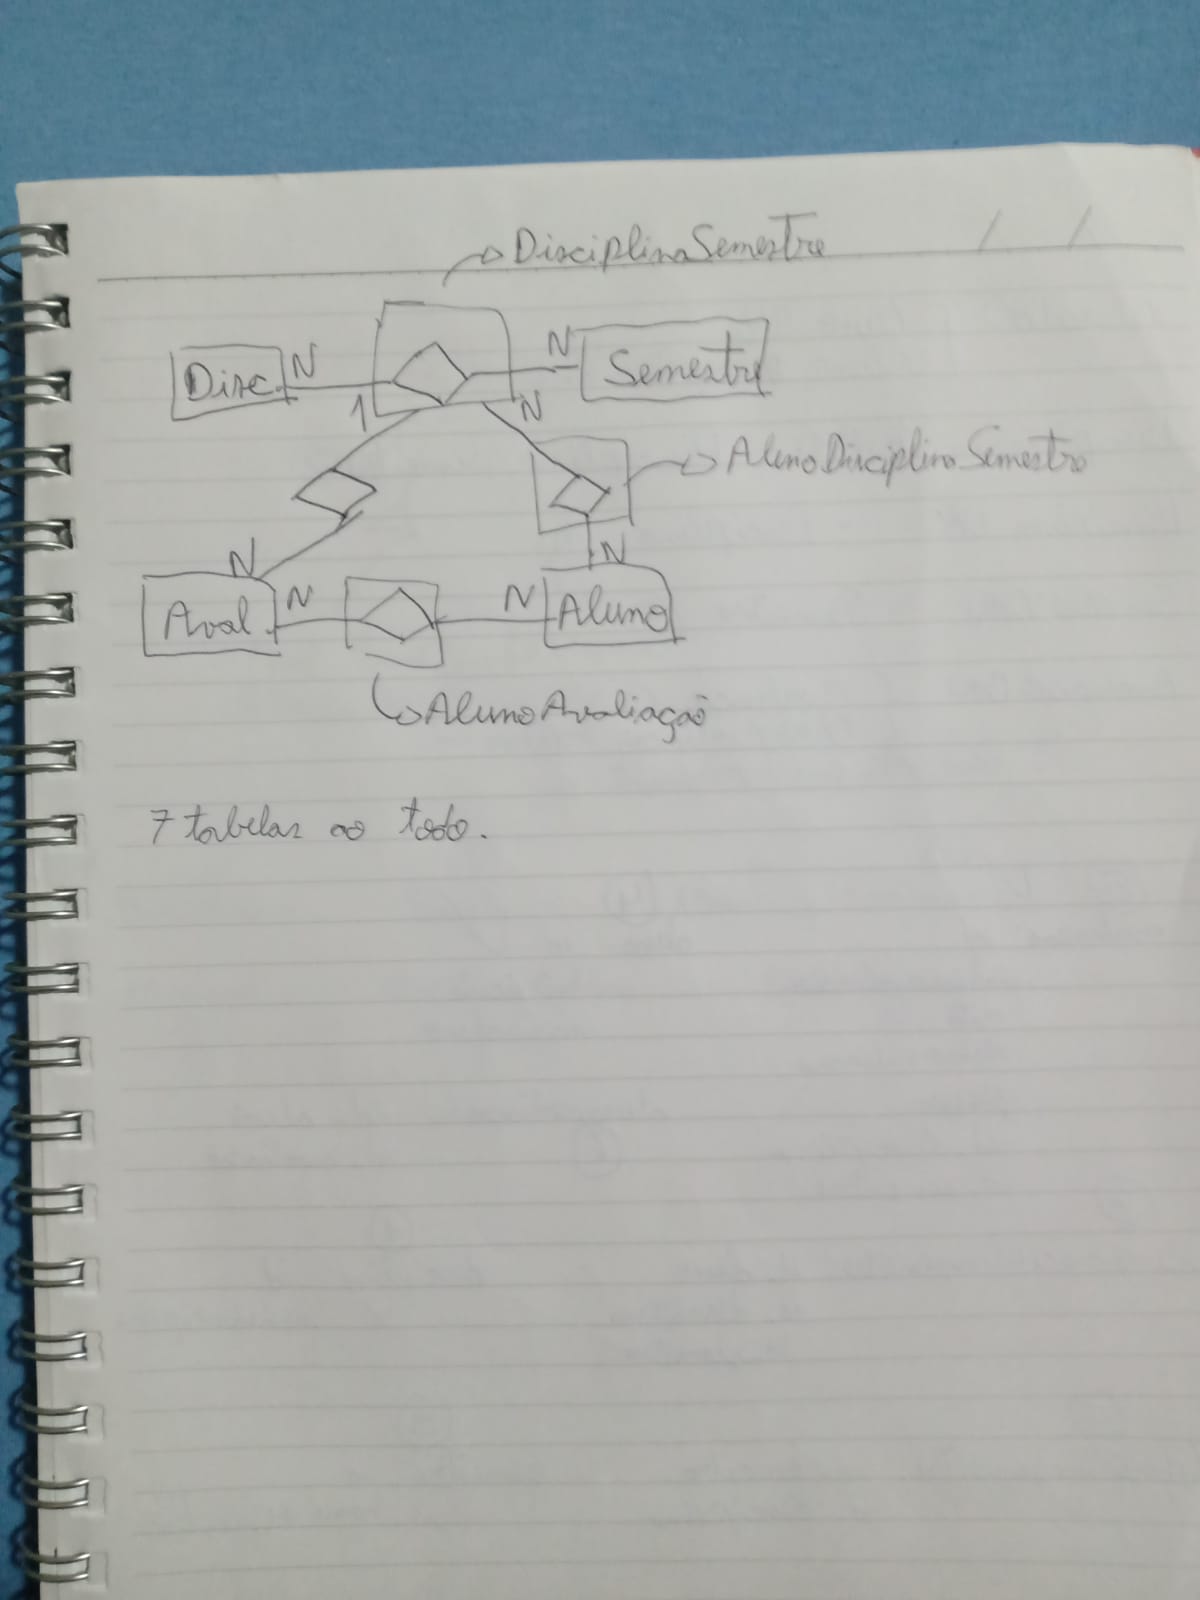 DisciplinaSemestre
Disc. N N Semestre
1 N
AlunoDisciplinaSemestre
N N
Aval. N N Aluno
AlunoAvaliação
7 tabelas ao todo.